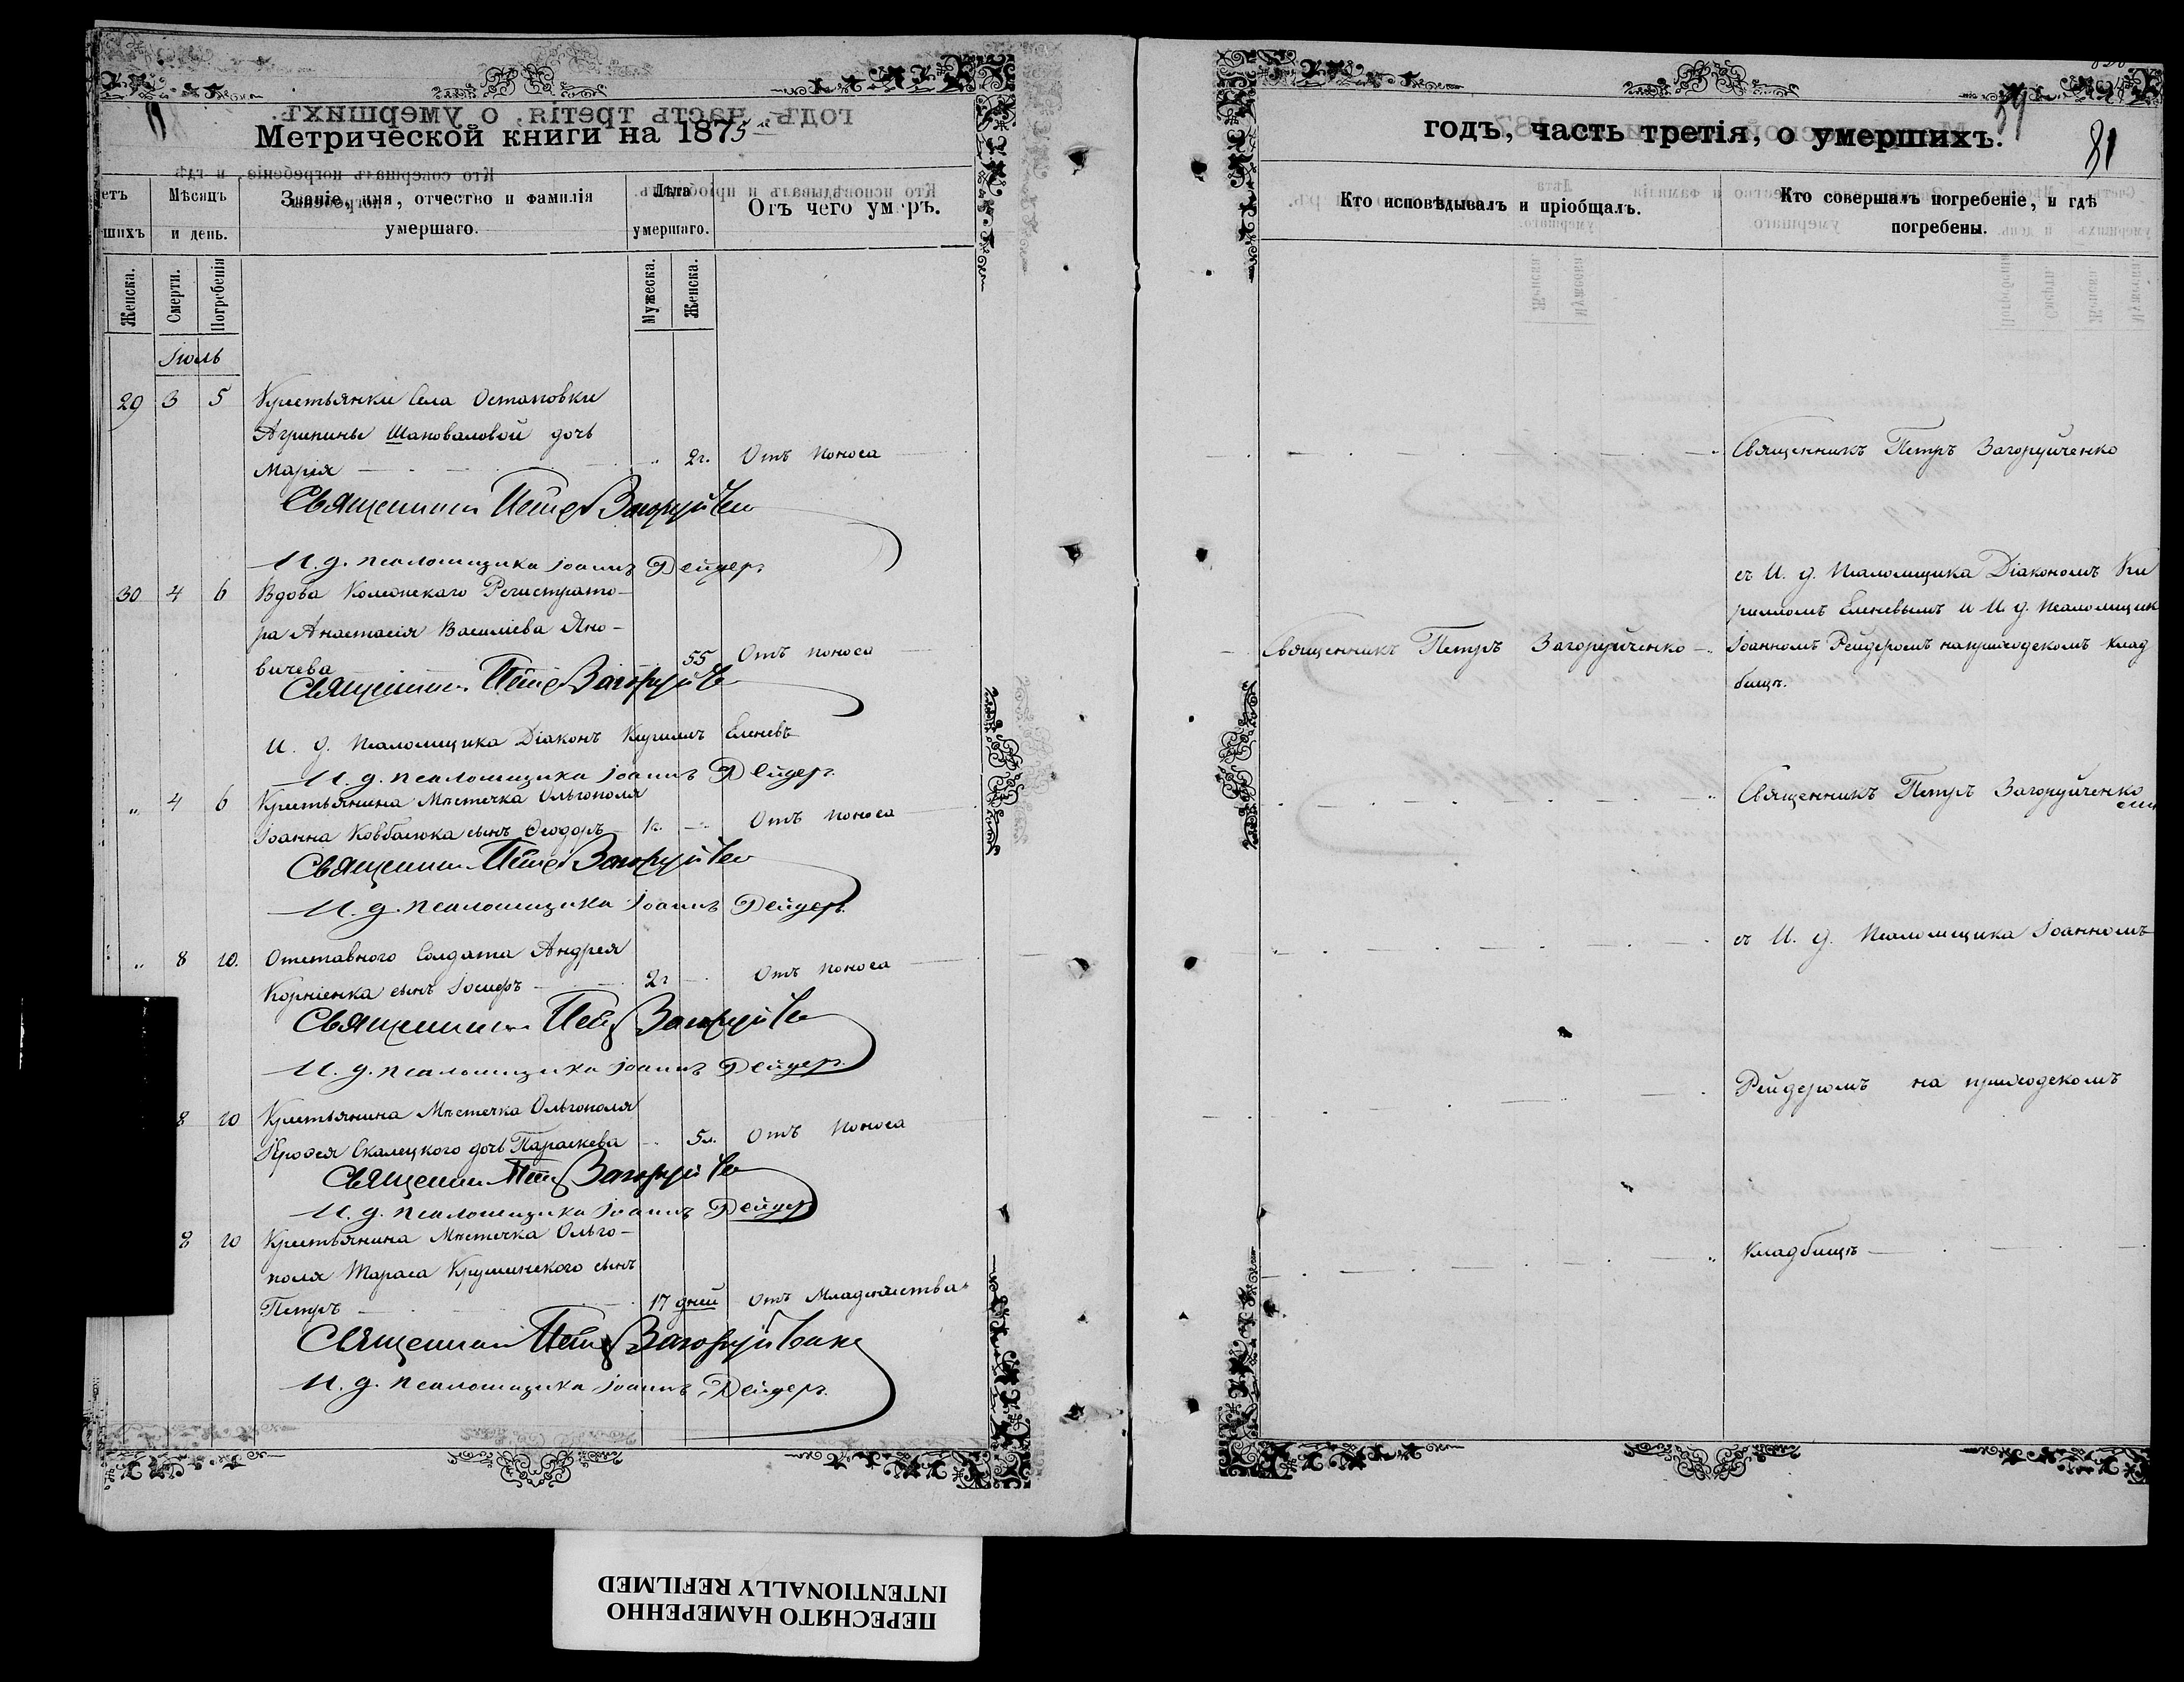 Метрической книги на 1875
етъ
шихъ
Мѣсяцъ
и день.
Званіе, имя, отчество и фамилія
умершаго.
Лѣта
умершаго.
Отъ чего умеръ.
Женска.
Смерти.
Погребенія
Мужеска.
Женска.
Іюль
29 3 5 Крестьянки Села Остаповки
Агрипины Шаповаловой дочь
Марія 2г. Отъ поноса
Священникъ Петръ Загоруйченко
И. д. псаломщика Іоаннъ Рейдеръ
30 4 6 Вдова Колежскаго Регистрато-
ра Анастасія Василіева Яно-
вичева 55 Отъ поноса
Священникъ Петръ Загоруйченко
И. д. Псаломщика Діаконъ Кириллъ Еленевъ
И. д. псаломщика Іоаннъ Рейдеръ.
„ 4 6 Крестьянина Мѣстечка Ольгополя
Іоанна Ковбасюка сынъ Ѳеодоръ 1г. Отъ поноса
Священникъ Петръ Загоруйченко
И. д. псаломщика Іоаннъ Рейдеръ.
„ 8 10. Отставного Солдата Андрея
Корніенка сынъ Іосифъ 2г Отъ поноса
Священникъ Петръ Загоруйченко
И. д. псаломщика Іоаннъ Рейдеръ.
8 10 Крестьянина Мѣстечка Ольгополя
Скалецкого дочь Параскева 5л. Отъ поноса
Священникъ Петръ Загоруйченко
И. д. псаломщика Іоаннъ Рейдеръ
8 10 Крестьянина Мѣстечка Ольго-
поля Тараса Крушинского сынъ
Петръ 17 дней Отъ Младенчества
Священникъ Петръ Загоруйченко
И. д. псаломщика Іоаннъ Рейдеръ.
годъ, часть третія, о умершихъ.
81
Кто исповѣдывалъ и пріобщалъ.
Кто совершалъ погребеніе, и гдѣ
погребены.
Священникъ Петръ Загоруйченко
съ И. д. Псаломщика Діакономъ Ки
рилломъ Еленевымъ и И. д. Псаломщик
Священникъ Петръ Загоруйченко
Іоанномъ Рейдеромъ на приходскомъ клад
бищѣ.
Священникъ Петръ Загоруйченко
съ И. д. Псаломщика Іоанномъ
Рейдеромъ на приходскомъ
Кладбищѣ
ПЕРЕСНЯТО НАМЕРЕННО
INTENTIONALLY REFILMED